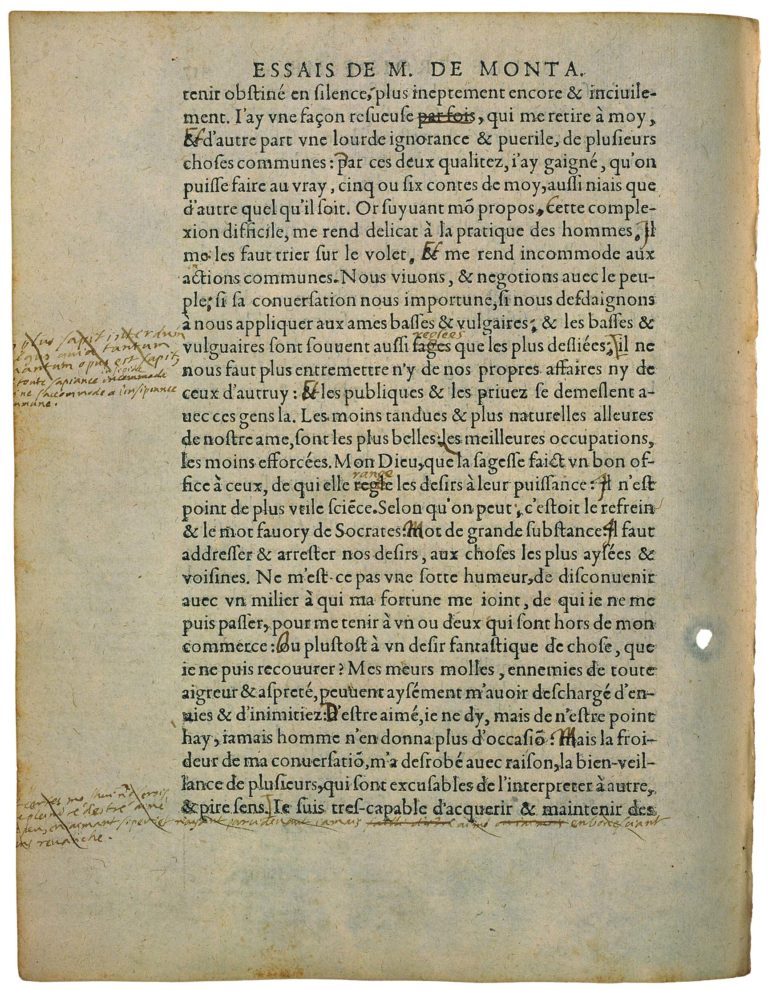 ESSAIS DE M. DE MONTA.
tenir obstiné en silence, plus ineptement encore & inciuile-
ment. I'ay vne façon resueuse par fois, qui me retire à moy,
Et d'autre part vne lourde ignorance & puerile, de plusieurs
choses communes: Par ces deux qualitez, i'ay gaigné, qu'on
puisse faire au vray, cinq ou six contes de moy, aussi niais que
d'autre quel qu'il soit. Or suyuant mõ propos, Cette comple-
xion difficile, me rend delicat à la pratique des hommes, Il
me les faut trier sur le volet, Et me rend incommode aux
actions communes. Nous viuons, & negotions auec le peu-
ple; si sa conuersation nous importune, si nous desdaignons
à nous appliquer aux ames basses & vulgaires; & les basses &
reglees
vulguaires sont souuent aussi sages que les plus desliées, il ne
nous faut plus entremettre n'y de nos propres affaires ny de
ceux d'autruy: Et les publiques & les priuez se demeslent a-
uec ces gens la. Les moins tandues & plus naturelles alleures
de nostre ame, sont les plus belles: les meilleures occupations,
les moins efforcées. Mon Dieu, que la sagesse faict vn bon of-
range
fice à ceux, de qui elle regle les desirs à leur puissance: Il n'est
point de plus vtile sciẽce. Selon qu'on peut, c'estoit le refrein
& le mot fauory de Socrates: Mot de grande substance: Il faut
addresser & arrester nos desirs, aux choses les plus aysées &
voisines. Ne m'est-ce pas vne sotte humeur, de disconuenir
auec vn milier à qui ma fortune me ioint, de qui ie ne me
puis passer, pour me tenir à vn ou deux qui sont hors de mon
commerce: Ou plustost à vn desir fantastique de chose, que
ie ne puis recouurer? Mes meurs molles, ennemies de toute
aigreur & aspreté, peuuent aysément m'auoir deschargé d'en-
uies & d'inimitiez: D'estre aimé, ie ne dy, mais de n'estre point
hay, iamais homme n'en donna plus d'occasiõ: Mais la froi-
deur de ma conuersatiõ, m'a desrobé auec raison, la bien-veil-
lance de plusieurs, qui sont excusables de l'interpreter à autre,
& pire sens. Ie suis tres-capable d'acquerir & maintenir des
plus sapit interdum
tantum
opus est sapit
toute sapiance
incommode
ne s'accommode a l'insipiance
revanche.